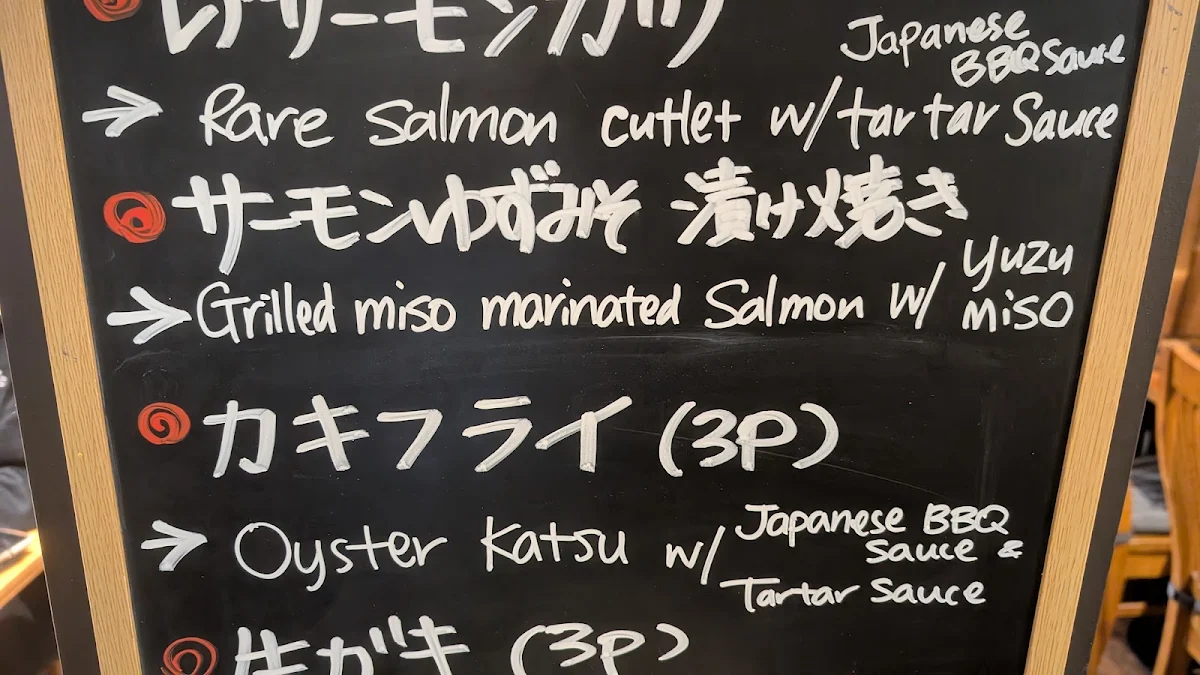 レアサーモンカツ
Japanese
BBQ Sauce
→ Rare Salmon cutlet w/ tartar Sauce
サーモンゆずみそ 漬け焼き
→ Grilled miso marinated Salmon w/ yuzu miso
カキフライ (3P)
→ Oyster Katsu w/ Japanese BBQ
Sauce &
Tartar Sauce
生ガキ (3P)